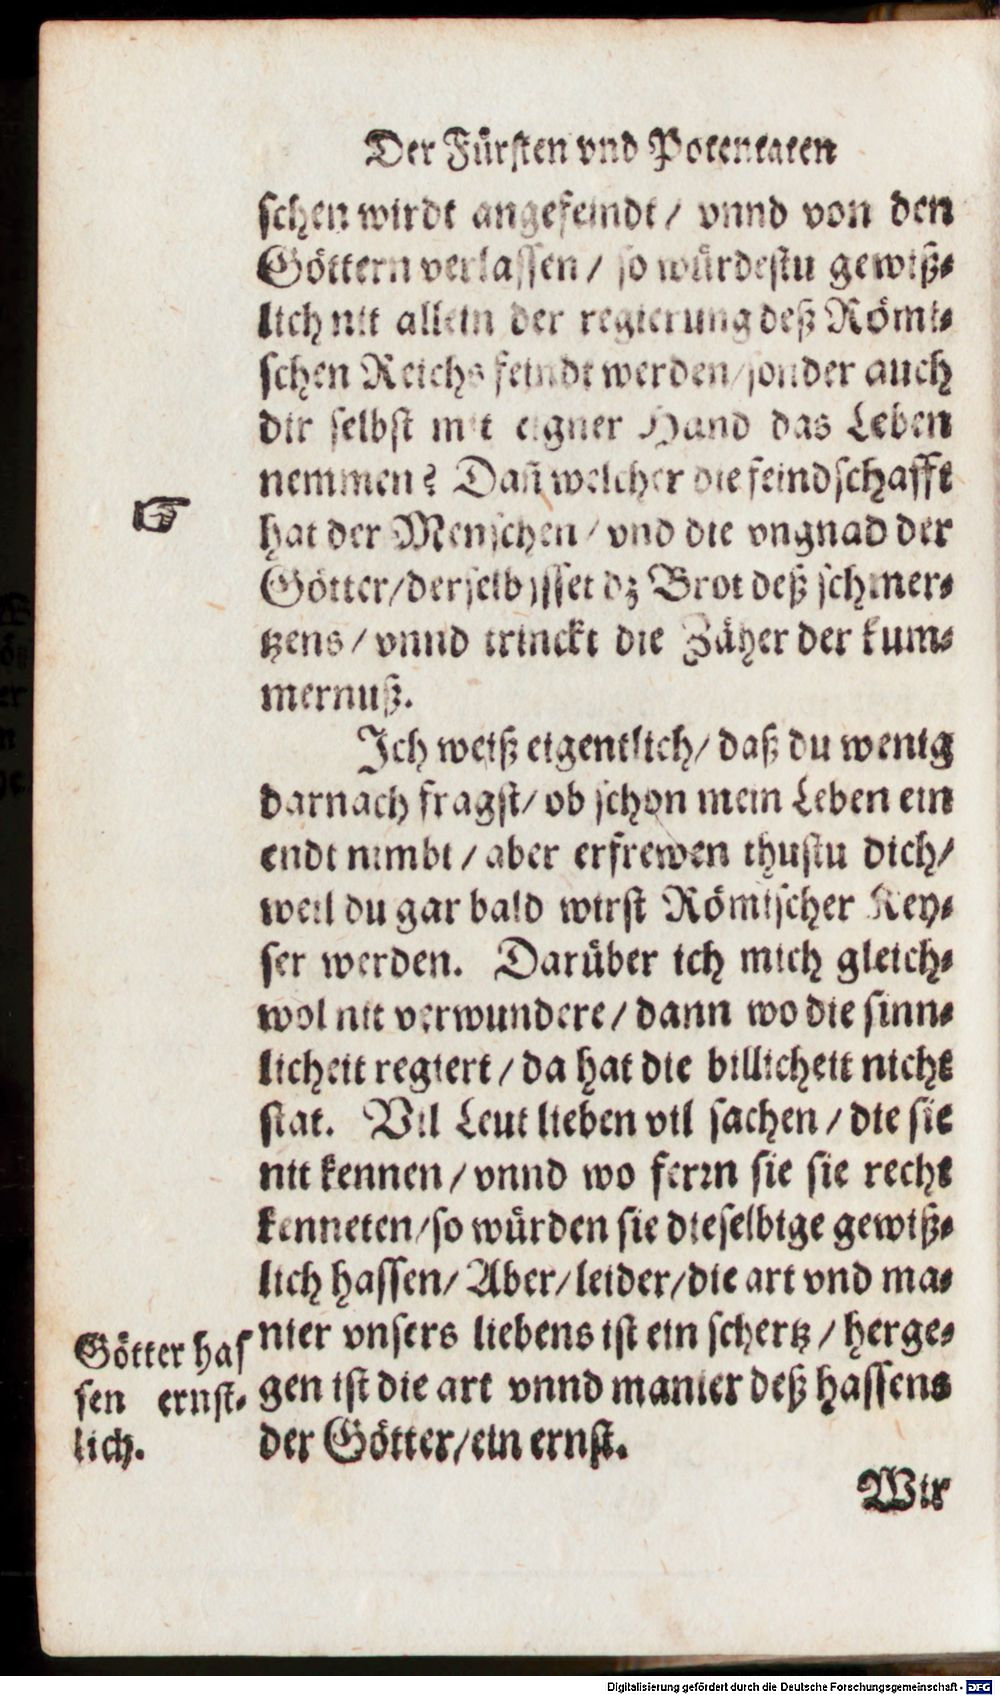 Der Fürsten vnd Potentaten
schen wirdt angefeindt / vnnd von den
Göttern verlassen / so würdestu gewiß⸗
lich nit allein der regierung deß Römi⸗
schen Reichs feindt werden / sonder auch
dir selbst mit eigner Hand das Leben
nemmen? Dañ welcher die feindschafft
hat der Menschen / vnd die vngnad der
Götter / derselb jsset dz Brot deß schmer⸗
tzens / vnnd trinckt die Zäher der kum⸗
mernuß.
Ich weiß eigentlich / daß du wenig
darnach fragst / ob schon mein Leben ein
endt nimbt / aber erfrewen thustu dich /
weil du gar bald wirst Römischer Key⸗
ser werden. Darüber ich mich gleich⸗
wol nit verwundere / dann wo die sinn⸗
licheit regiert / da hat die billicheit nicht
stat. Vil Leut lieben vil sachen / die sie
nit kennen / vnnd wo ferrn sie sie recht
kenneten / so würden sie dieselbige gewiß⸗
lich hassen / Aber / leider / die art vnd ma⸗
nier vnsers liebens ist ein schertz / herge⸗
gen ist die art vnnd manier deß hassens
der Götter / ein ernst.
Götter has
sen ernst⸗
lich.
Wir
Digitalisierung gefördert durch die Deutsche Forschungsgemeinschaft - DFG